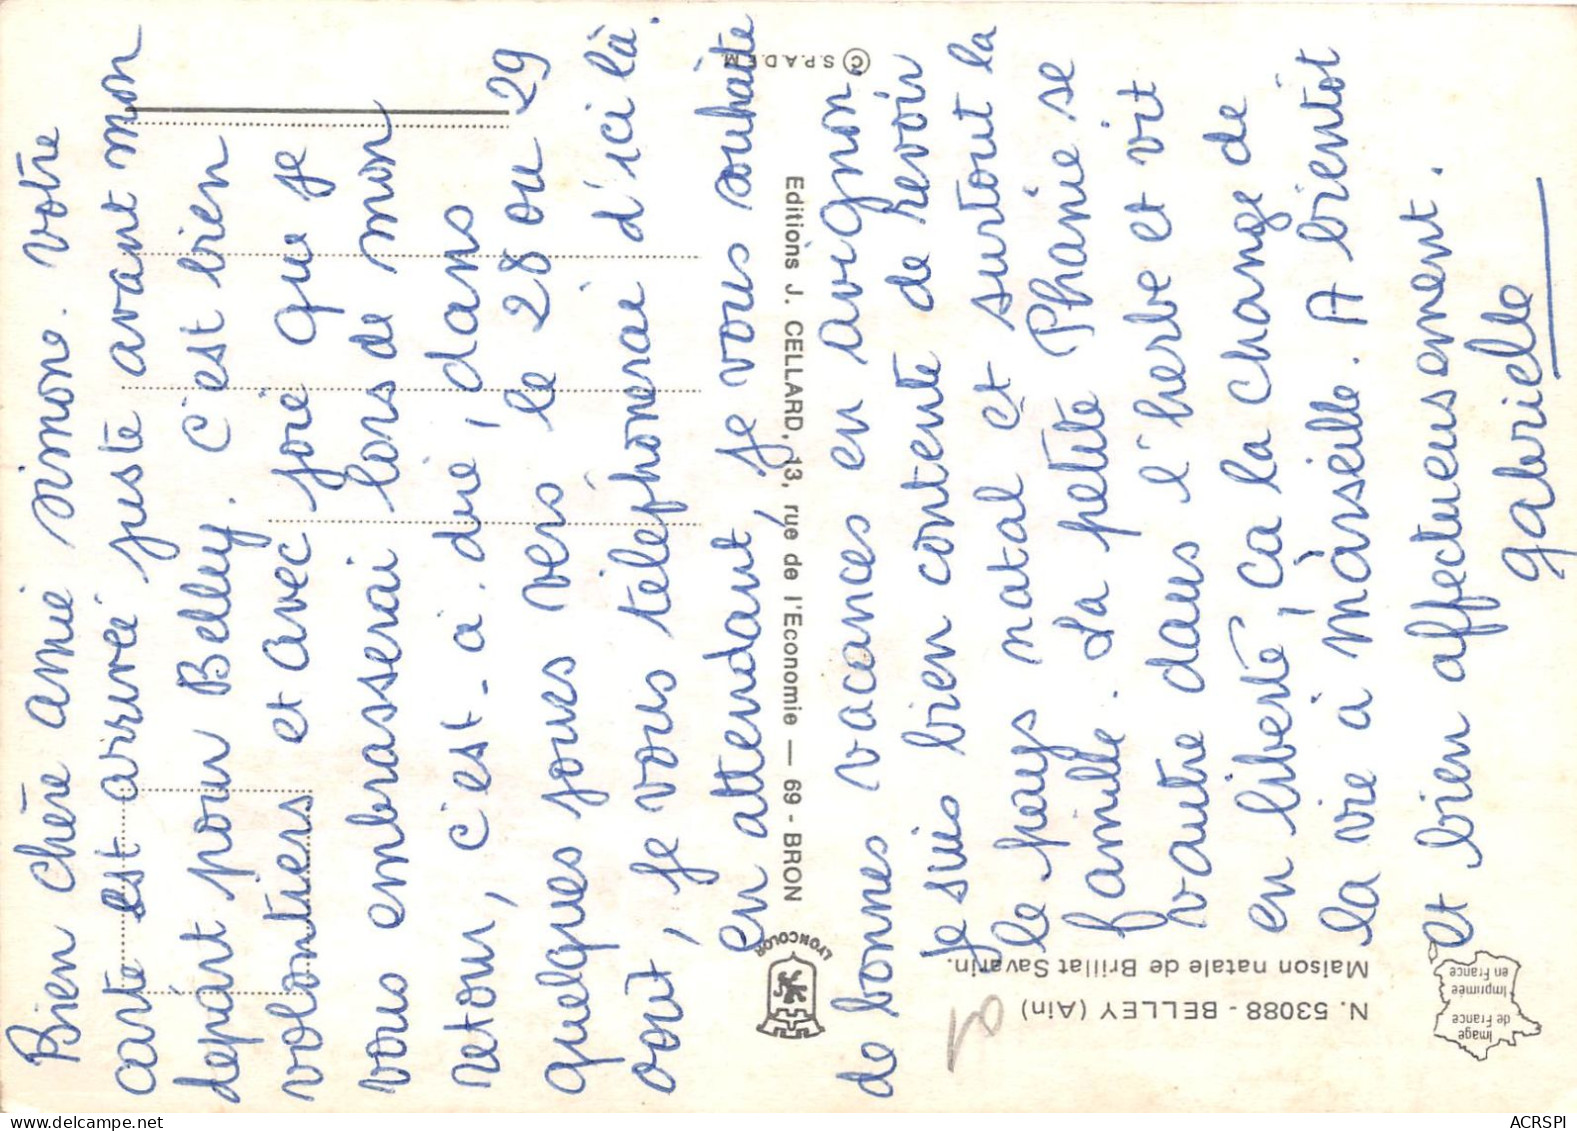 Bien chère amie simone. votre
carte est arrivée juste avant mon
départ pour Belley. c'est bien
volontiers et avec joie que je
vous embrasserai lors de mon
retour, c'est-à-dire, dans
quelques jours vers le 28 ou 29
août, je vous téléphonerai d'ici là.
en attendant, je vous souhaite
de bonnes vacances en avignon,
je suis bien contente de revoir
le pays natal et surtout la
famille. La petite Phanie se
vautre dans l'herbe et vit
en liberté, ça la change de
la vie à màrseille. A bientot
et bien affectueusement.
gabrielle
© S.P.A.D.E.M.
Editions J. CELLARD, 13, rue de l'Economie — 69 - BRON
LYONCOLOR
N. 53088 - BELLEY (Ain)
Maison natale de Brillat Savarin.
Image
de France
Imprimée
en France
ACRSPI